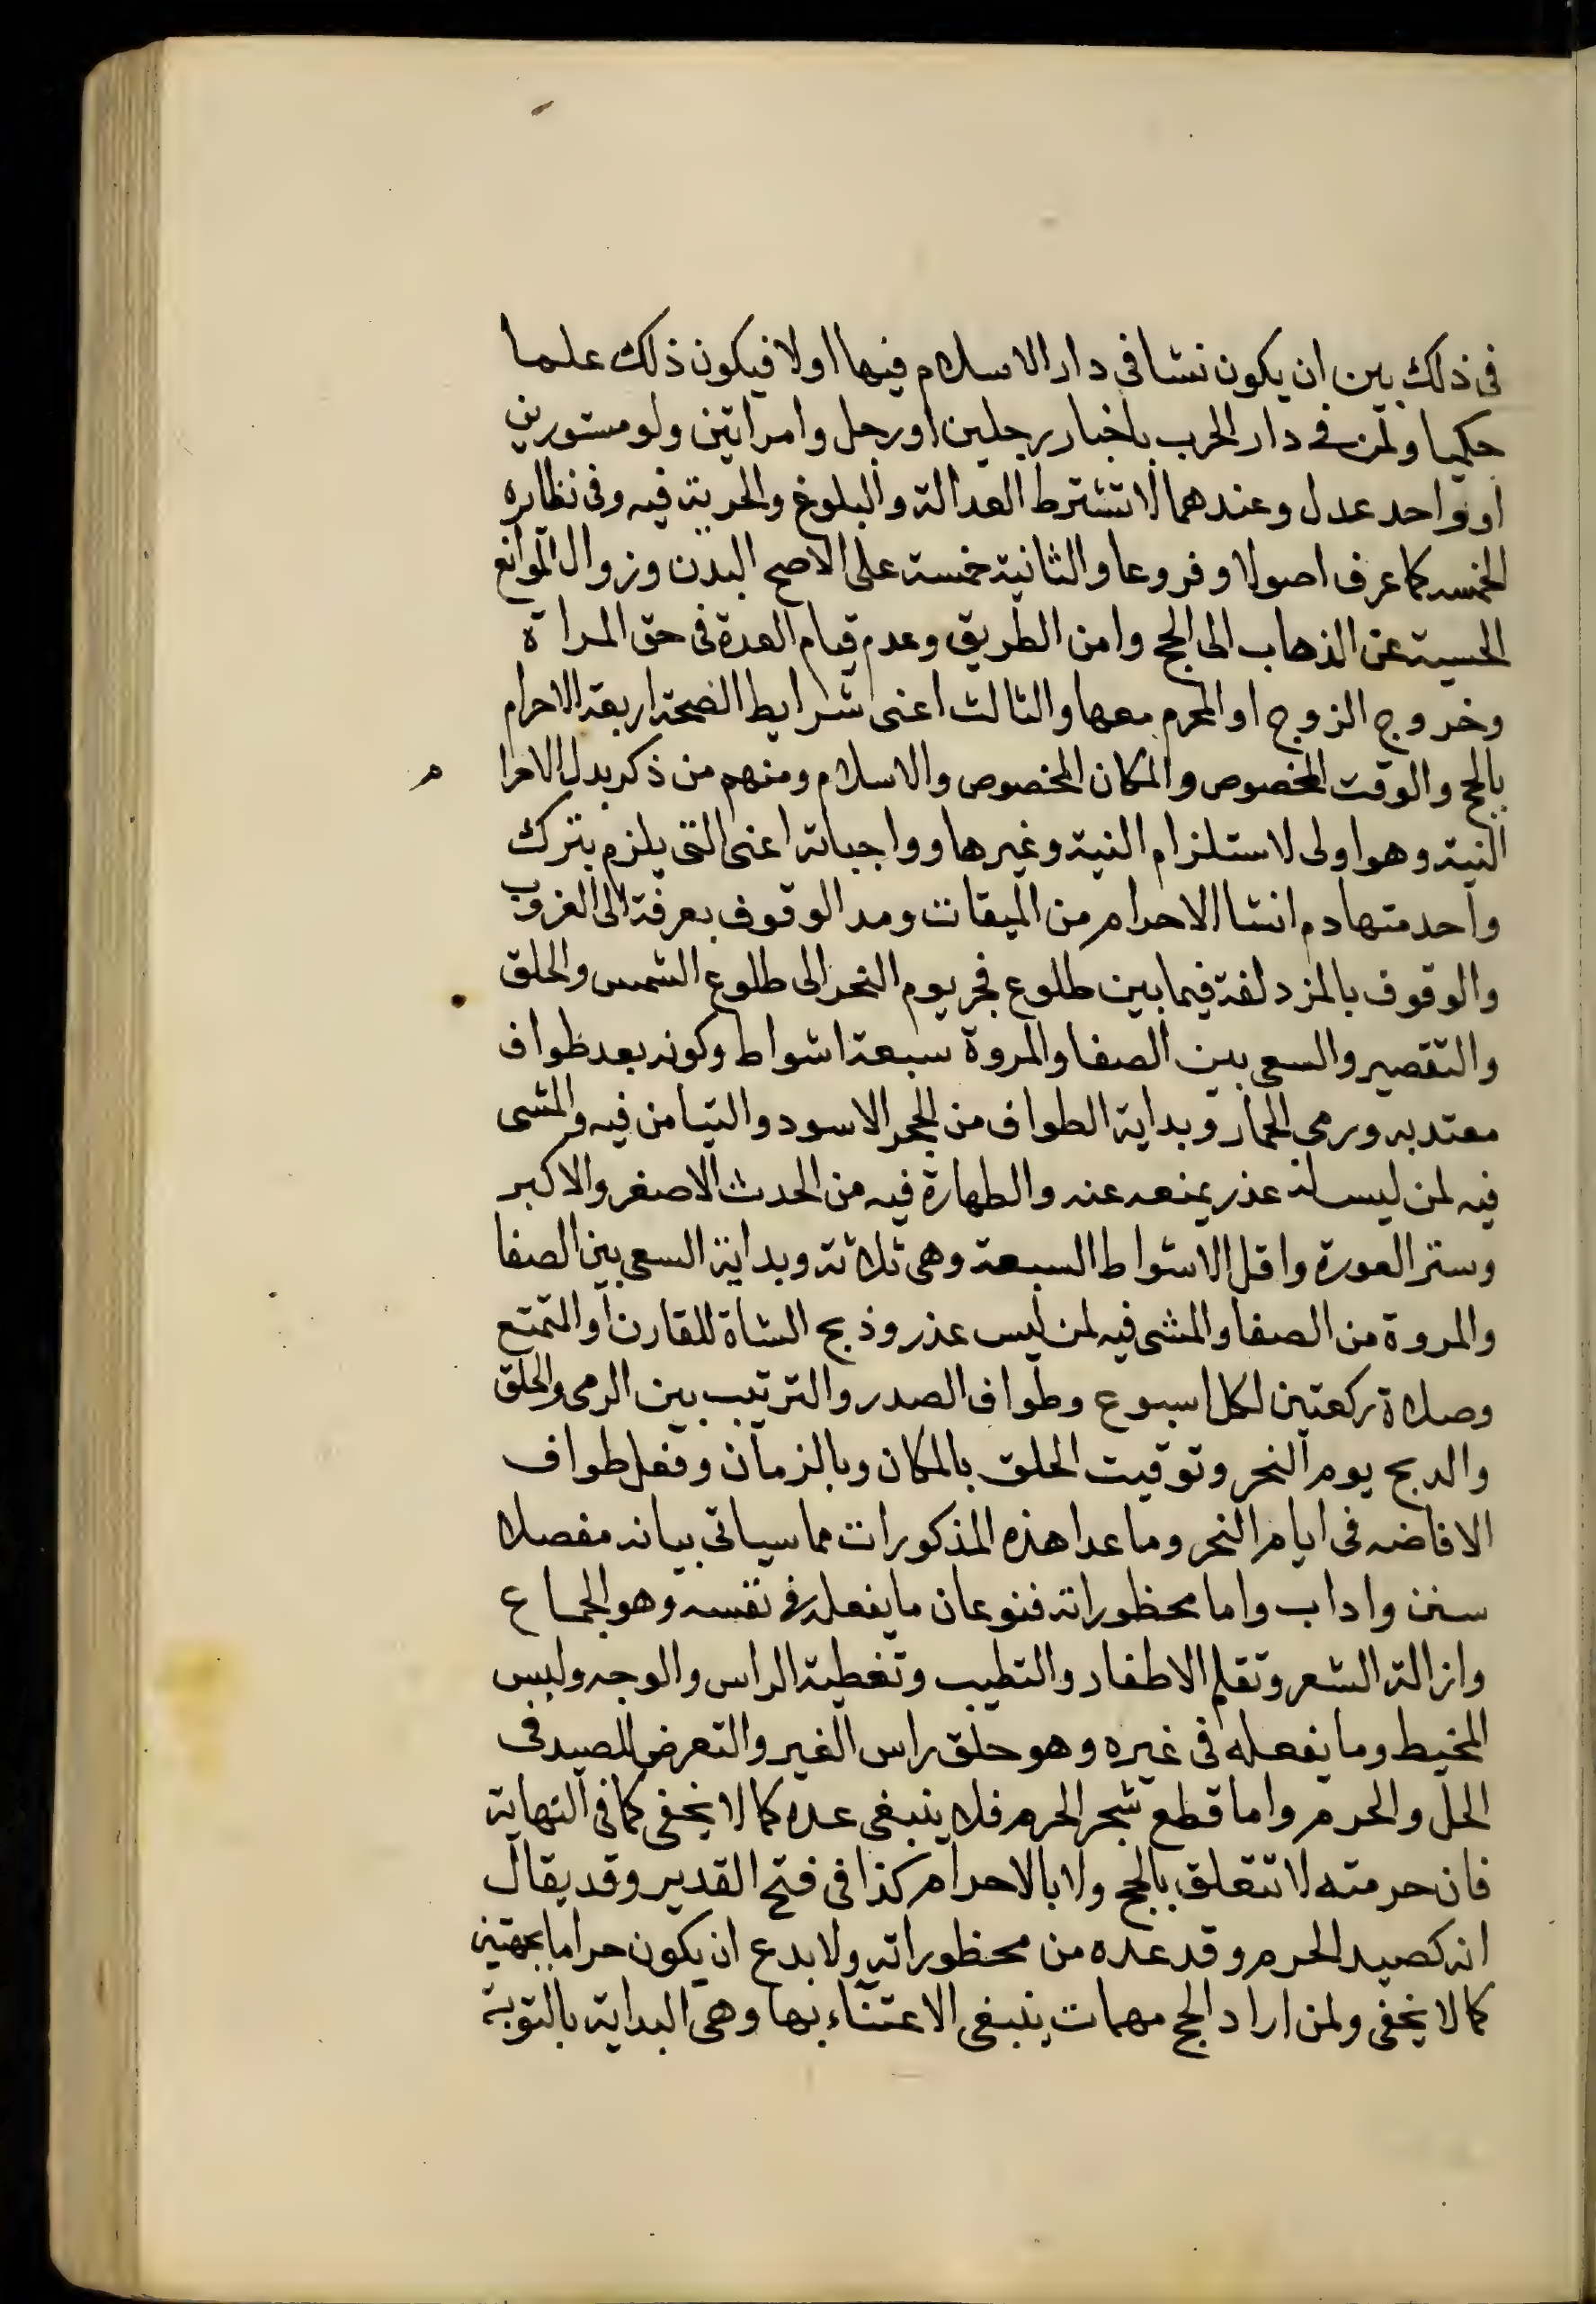 فى ذلك بين ان يكون نشا فى دار الاسلام فيها اولا فيكون ذلك علما
حكميا ولمن فى دار الحرب باخبار رجلين او رجل وامراتين ولو مستورين
او واحد عدل وعندهما لا تشترط العدالة والبلوغ والحرية فيه وفى نظاره
الخمسه كما عرف اصولا وفروعا والثانية خمسة على الاصح البدن وزوال الموانع
الحسية عن الذهاب الى الحج وامن الطريق وعدم قيام العدة فى حق المراة
وخروج الزوج او المحرم معها والثالث اعنى شرايط الصحة اربعة الاحرام
بالحج والوقت المخصوص والمكان المخصوص والاسلام ومنهم من ذكر بدل الاحرا م
النية وهو اولى لاستلزام النية وغيرها وواجباته اعنى التى يلزم بترك
واحد منها دم انشا الاحرام من الميقات ومد الوقوف بعرفة الى الغروب
والوقوف بالمزدلفة فيما بين طلوع فجر يوم النحر الى طلوع الشمس والحلق
والتقصير والسعى بين الصفا والمروة سبعة اشواط وكونه بعد طواف
معتد به ورمى الجمار وبداية الطواف من الحجر الاسود والتيامن فيه والمشى
فيه لمن ليس له عذر يمنعه عنه والطهارة فيه من الحدث الاصغر والاكبر
وستر العورة واقل الاشواط السبعة وهى ثلاثة وبداية السعى بين الصفا
والمروة من الصفا والمشى فيه لمن ليس عذر وذبح الشاة للقارن او المتمتع
وصلاة ركعتين لكل اسبوع وطواف الصدر والترتيب بين الرمى والحلق
والدبح يوم النحر وتوقيت الحلق بالمكان وبالزمان وفعل طواف
الافاضه فى ايام النحر وما عدا هذه المذكورات مما سياتى بيانه مفصلا
سنن واداب واما محظوراته فنوعان ما يفعله فى نفسه وهو الجماع
وازالة الشعر وتقلم الاظفار والتطيب وتغطية الراس والوجه ولبس
المخيط وما يفعله فى غيره وهو حلق راس الغير والتعرض للصيد فى
الحل والحرم واما قطع شجر الحرم فلا ينبغى عده كما لا يخفى كما فى النهاية
فان حرمته لا تتعلق بالحج ولا بالاحرام كذا فى فتح القدير وقد يقال
انه كصيد الحرم وقد عده من محظوراته ولا بدع ان يكون حراما بجهتين
كما لا يخفى ولمن اراد الحج مهمات ينبغى الاعتناء بها وهى البداية بالتوبة